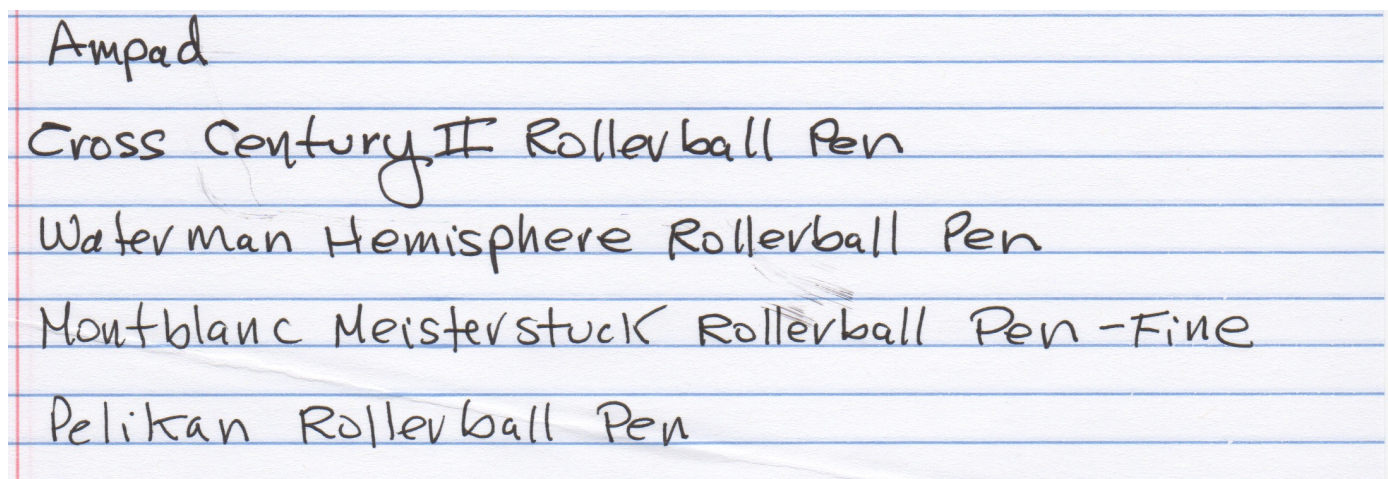 Ampad
Cross Century II Rollerball Pen
Waterman Hemisphere Rollerball Pen
Montblanc Meisterstuck Rollerball Pen - Fine
Pelikan Rollerball Pen